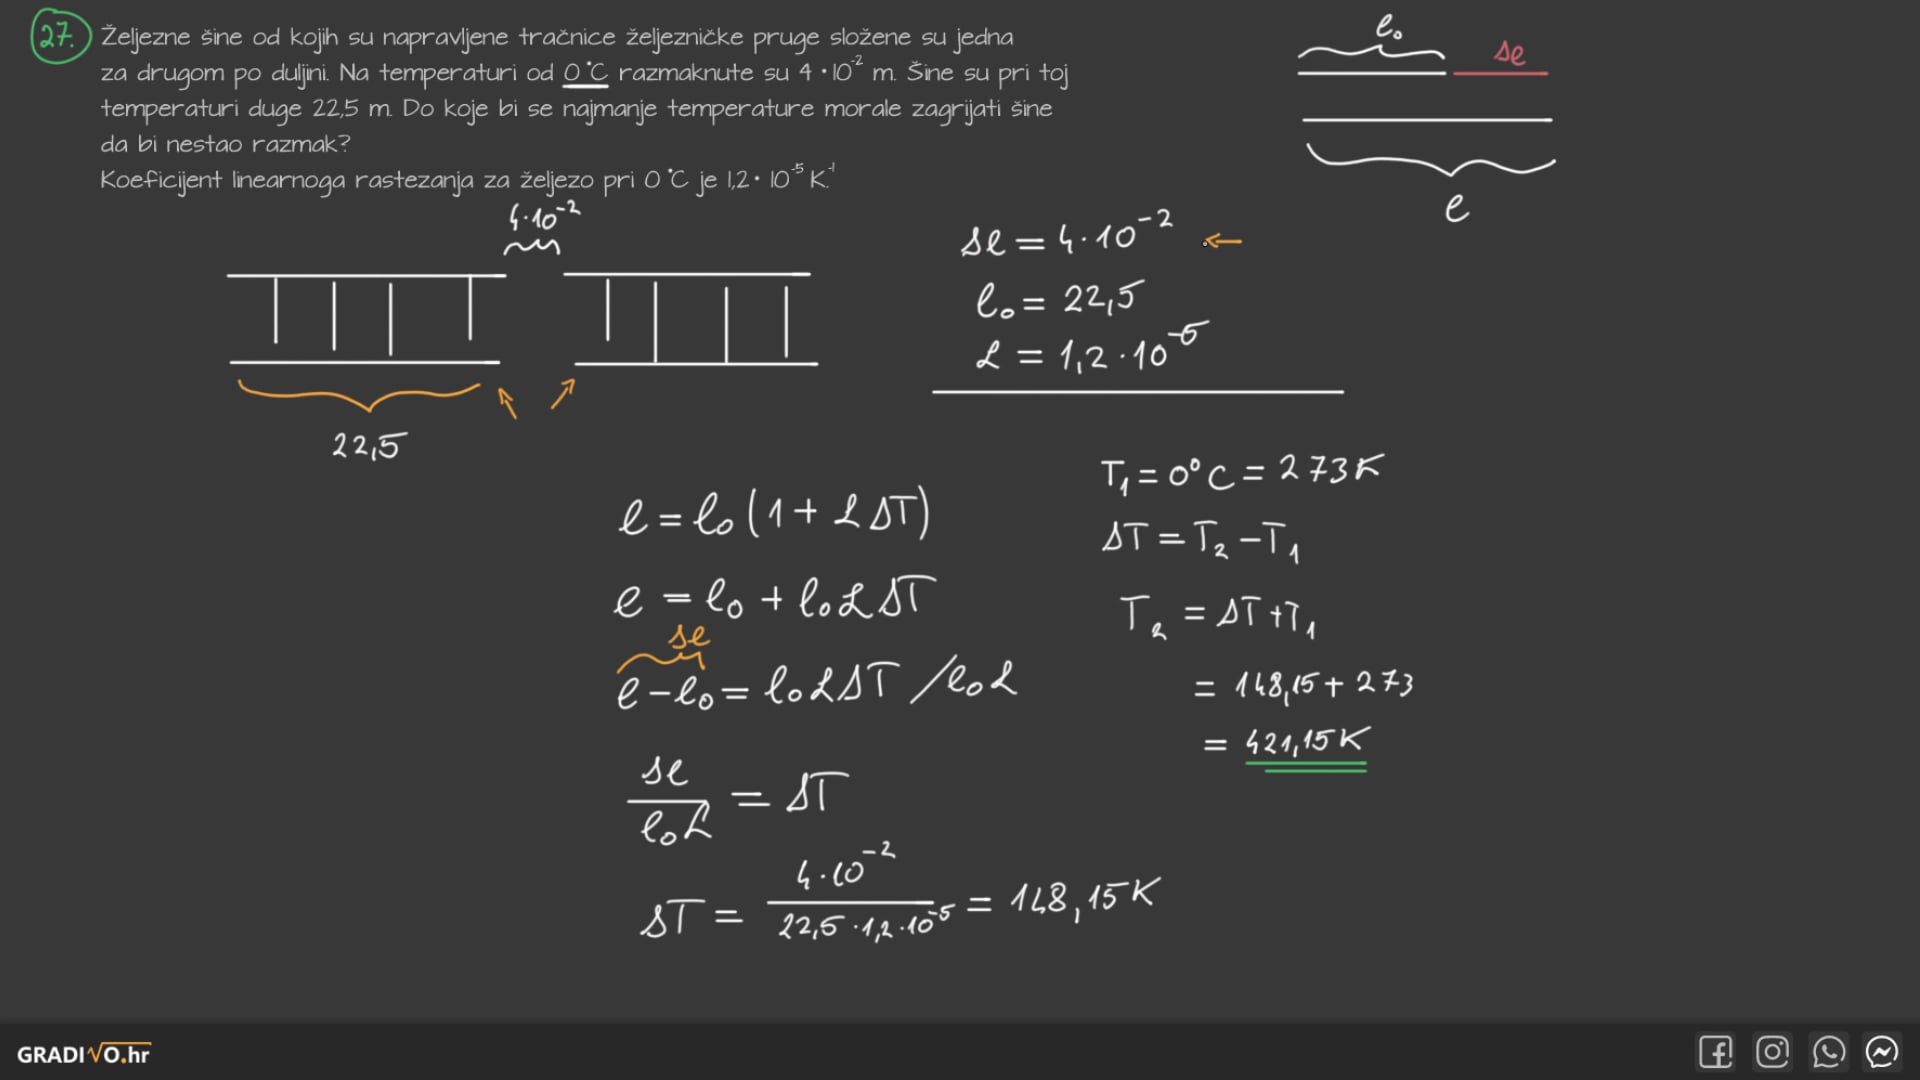 27. Željezne šine od kojih su napravljene tračnice željezničke pruge složene su jedna
za drugom po duljini. Na temperaturi od 0 °C razmaknute su 4 · 10⁻² m. Šine su pri toj
temperaturi duge 22,5 m. Do koje bi se najmanje temperature morale zagrijati šine
da bi nestao razmak?
Koeficijent linearnoga rastezanja za željezo pri 0 °C je 1,2 · 10⁻⁵ K⁻¹.
l₀
Δl
l
4·10⁻²
22,5
Δl = 4·10⁻² ←
l₀ = 22,5
α = 1,2·10⁻⁵
l = l₀(1 + αΔT)
l = l₀ + l₀αΔT
Δl
l − l₀ = l₀αΔT /l₀α
Δl/l₀α = ΔT
ΔT = 4·10⁻²/22,5·1,2·10⁻⁵ = 148,15K
T₁ = 0°C = 273K
ΔT = T₂ − T₁
T₂ = ΔT + T₁
= 148,15 + 273
= 421,15K
GRADIVO.hr